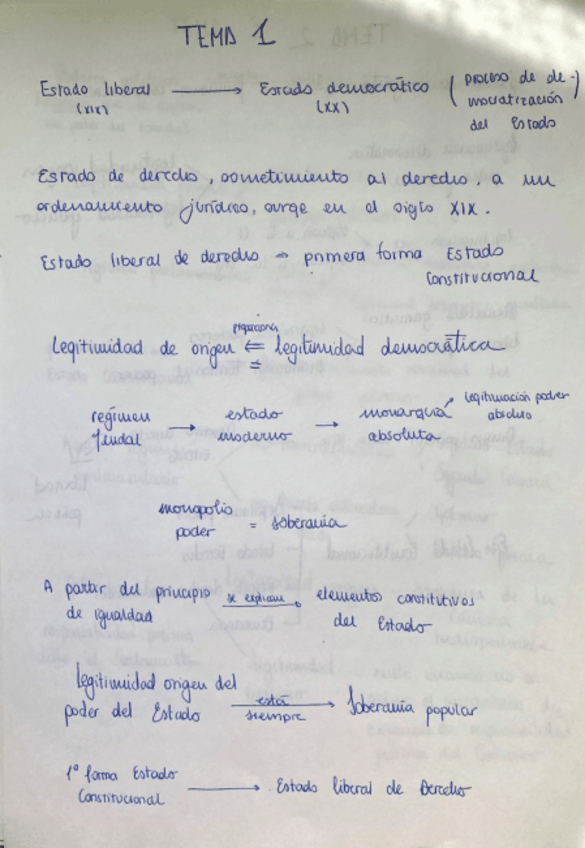 TEMA 1
Estado liberal → Estado democrático ( proceso de de-
(XIX) (XX) mocratización )
del Estado
Estado de derecho, sometimiento al derecho, a un
ordenamiento jurídico, surge en el siglo XIX.
Estado liberal de derecho → primera forma Estado
Constitucional
Legitimidad de origen ⇐ legitimidad democrática
=
régimen feudal → estado moderno → monarquía absoluta ↗ legitimación poder absoluto
monopolio poder = soberanía
A partir del principio se explican → elementos constitutivos
de igualdad del Estado
Legitimidad origen del
poder del Estado está siempre → Soberanía popular
1ª forma Estado
Constitucional → Estado liberal de Derecho